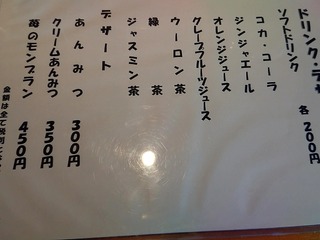 ドリンク・デザ
ソフトドリンク 各 200円
コカ・コーラ
ジンジャエール
オレンジジュース
グレープフルーツジュース
ウーロン茶
緑茶
ジャスミン茶
デザート
あんみつ 300円
クリームあんみつ 350円
苺のモンブラン 450円
金額は全て税別